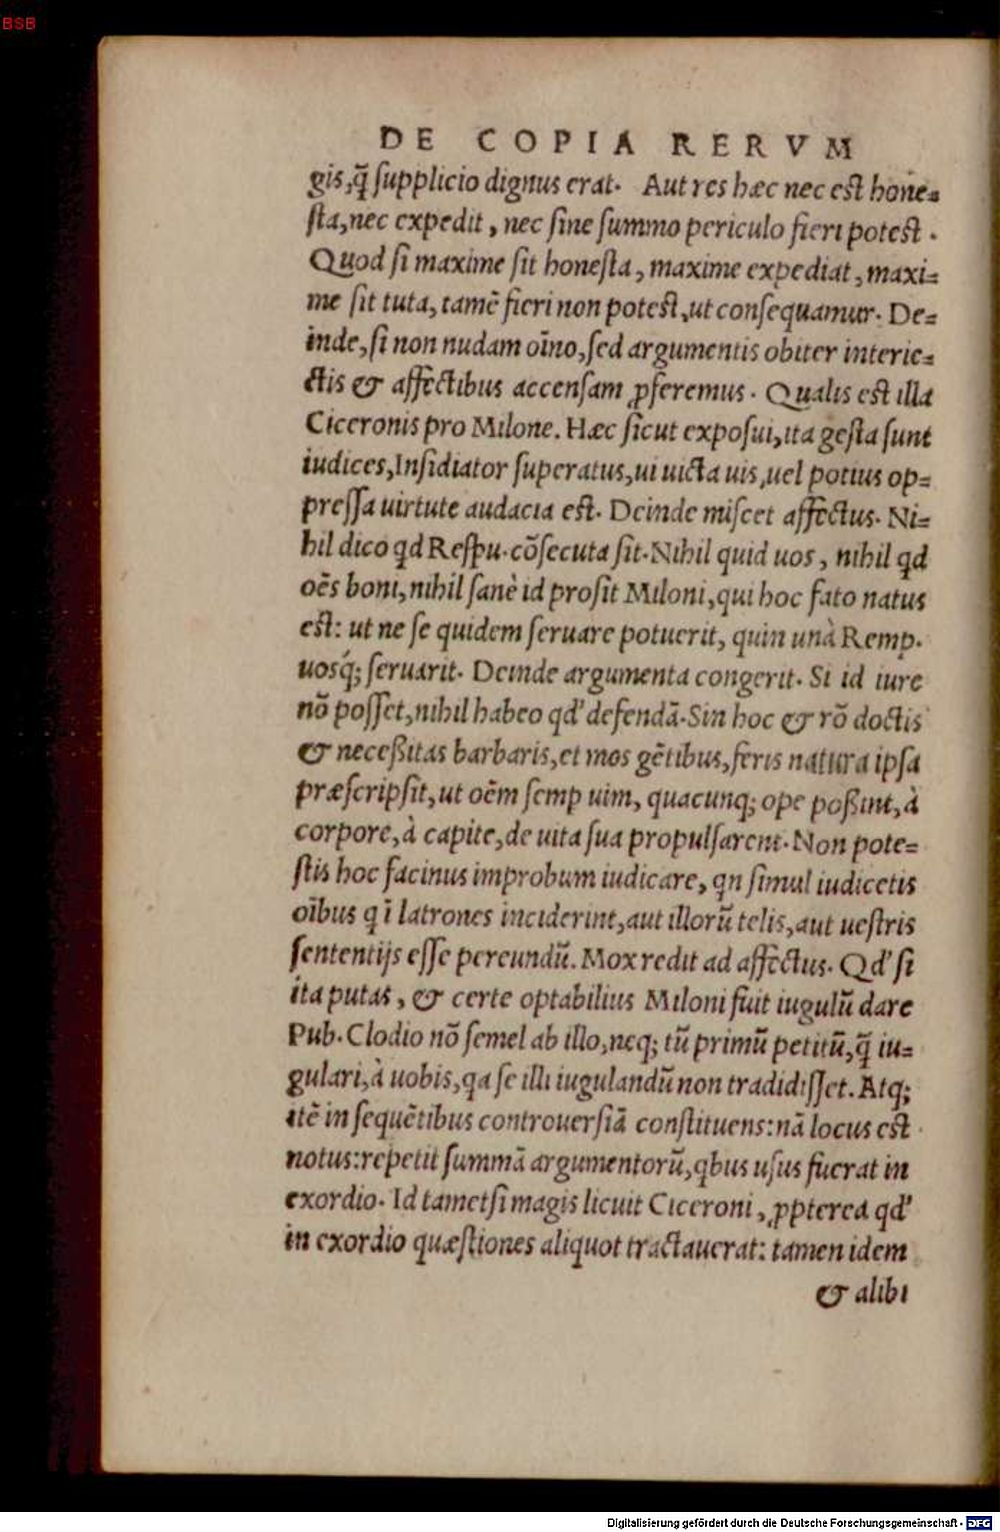 BSB
DE COPIA RERVM
gis, q̃ ſupplicio dignus erat. Aut res hæc nec eſt hone=
ſta, nec expedit, nec ſine ſummo periculo fieri poteſt.
Quod ſi maxime ſit honeſta, maxime expediat, maxi=
me ſit tuta, tamẽ fieri non poteſt, ut conſequamur. De=
inde, ſi non nudam oĩno, ſed argumentis obiter interie=
ctis & affectibus accenſam ꝓferemus. Qualis eſt illa
Ciceronis pro Milone. Hæc ſicut expoſui, ita geſta ſunt
iudices, Inſidiator ſuperatus, ui uicta uis, uel potius op=
preſſa uirtute audacia eſt. Deinde miſcet affectus. Ni=
hil dico qd Reſpu. cõſecuta ſit. Nihil quid uos, nihil qd
oẽs boni, nihil ſanè id proſit Miloni, qui hoc fato natus
eſt: ut ne ſe quidem ſeruare potuerit, quin unà Remp.
uosq́; ſeruarit. Deinde argumenta congerit. Si id iure
nõ poſſet, nihil habeo qd' defendã. Sin hoc & rõ doctis
& neceßitas barbaris, et mos gẽtibus, feris natura ipſa
præſcripſit, ut oẽm ſemp uim, quacunq; ope poßint, à
corpore, à capite, de uita ſua propulſarent. Non pote=
ſtis hoc facinus improbum iudicare, qn ſimul iudicetis
oĩbus q ĩ latrones inciderint, aut illorũ telis, aut ueſtris
ſententijs eſſe pereundũ. Mox redit ad affectus. Qd' ſi
ita putas, & certe optabilius Miloni fuit iugulũ dare
Pub. Clodio nõ ſemel ab illo, neq; tũ primũ petitũ, q̃ iu=
gulari, à uobis, qa ſe illi iugulandũ non tradidiſſet. Atq;
itẽ in ſequẽtibus controuerſiã conſtituens: nã locus eſt
notus: repetit ſummã argumentorũ, qbus uſus fuerat in
exordio. Id tametſi magis licuit Ciceroni, ꝓpterea qd'
in exordio quæſtiones aliquot tractauerat: tamen idem
& alibi
Digitalisierung gefördert durch die Deutsche Forschungsgemeinschaft - DFG